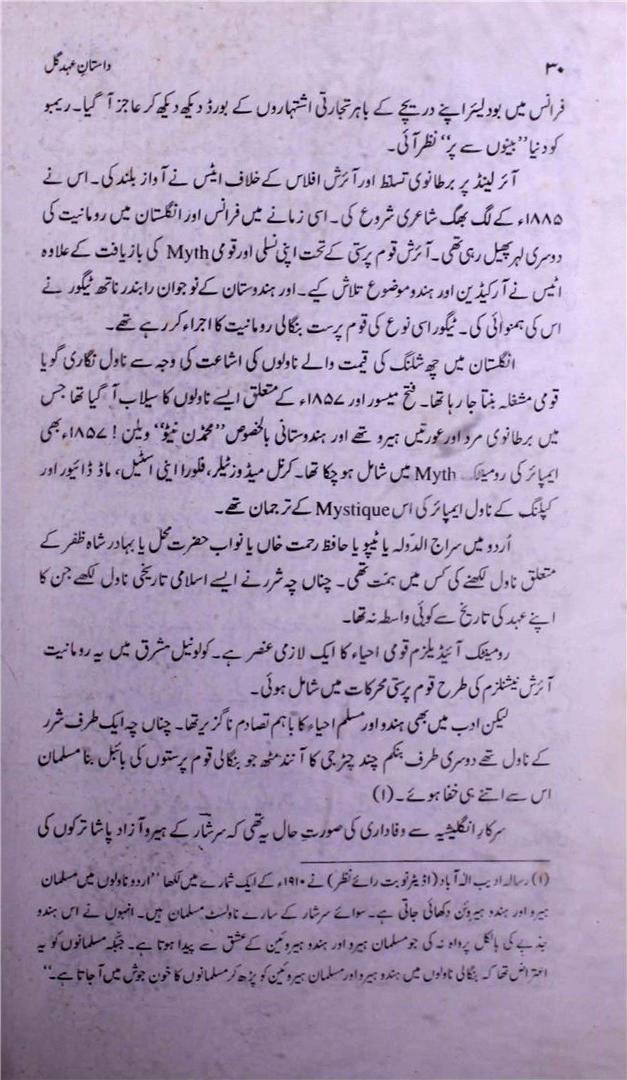 ۳۰
داستانِ عہدِ گل
فرانس میں بودلیئر اپنے دریچے کے باہر تجارتی اشتہاروں کے بورڈ دیکھ دیکھ کر عاجز آ گیا۔ ریمبو
کو دنیا ''بینوں سے پر'' نظر آئی۔
آئرلینڈ پر برطانوی تسلط اور آئرش افلاس کے خلاف ایٹس نے آواز بلند کی۔ اس نے
۱۸۸۵ء کے لگ بھگ شاعری شروع کی۔ اسی زمانے میں فرانس اور انگلستان میں رومانیت کی
دوسری لہر پھیل رہی تھی۔ آئرش قوم پرستی کے تحت اپنی نسلی اور قومی Myth کی بازیافت کے علاوہ
ایٹس نے آرکیڈین اور ہندو موضوع تلاش کیے۔ اور ہندوستان کے نوجوان رابندر ناتھ ٹیگور نے
اس کی ہمنوائی کی۔ ٹیگور اسی نوع کی قوم پرست بنگالی رومانیت کا اجراء کر رہے تھے۔
انگلستان میں چھ شلنگ کی قیمت والے ناولوں کی اشاعت کی وجہ سے ناول نگاری گویا
قومی مشغلہ بنتا جا رہا تھا۔ فتح میسور اور ۱۸۵۷ء کے متعلق ایسے ناولوں کا سیلاب آ گیا تھا جس
میں برطانوی مرد اور عورتیں ہیرو تھے اور ہندوستانی بالخصوص ''محمڈن نیٹو'' ویلن! ۱۸۵۷ء بھی
ایمپائر کی رومینٹک Myth میں شامل ہو چکا تھا۔ کرنل میڈوز ٹیلر، فلورا اینی اسٹیل، ماڈ ڈائیور اور
کپلنگ کے ناول ایمپائر کی اس Mystique کے ترجمان تھے۔
اُردو میں سراج الدّولہ یا ٹیپو یا حافظ رحمت خاں یا نواب حضرت محل یا بہادر شاہ ظفر کے
متعلق ناول لکھنے کی کس میں ہمّت تھی۔ چناں چہ شرر نے ایسے اسلامی تاریخی ناول لکھے جن کا
اپنے عہد کی تاریخ سے کوئی واسطہ نہ تھا۔
رومینٹک آئیڈیلزم قومی احیاء کا ایک لازمی عنصر ہے۔ کولونیل مشرق میں یہ رومانیت
آئرش نیشنلزم کی طرح قوم پرستی محرکات میں شامل ہوئی۔
لیکن ادب میں بھی ہندو اور مسلم احیاء کا باہم تصادم ناگزیر تھا۔ چناں چہ ایک طرف شرر
کے ناول تھے دوسری طرف بنکم چندر چٹرجی کا آنند مٹھ جو بنگالی قوم پرستوں کی بائبل بنا مسلمان
اس سے اتنے ہی خفا ہوئے۔ (۱)
سرکارِ انگلیشیہ سے وفاداری کی صورتِ حال یہ تھی کہ سرشار کے ہیرو آزاد پاشا ترکوں کی
(۱) رسالہ ادیب الٰہ آباد (اڈیٹر نوبت رائے نظر) نے ۱۹۱۰ء کے ایک شمارے میں لکھا ''اردو ناولوں میں مسلمان
ہیرو اور ہندو ہیروئن دکھائی جاتی ہے۔ سوائے سرشار کے سارے ناولسٹ مسلمان ہیں۔ انہوں نے اس ہندو
جذبے کی بالکل پرواہ نہ کی جو مسلمان ہیرو اور ہندو ہیروئین کے عشق سے پیدا ہوتا ہے۔ جبکہ مسلمانوں کو یہ
اعتراض تھا کہ بنگالی ناولوں میں ہندو ہیرو اور مسلمان ہیروئین کو پڑھ کر مسلمانوں کا خون جوش میں آ جاتا ہے۔''